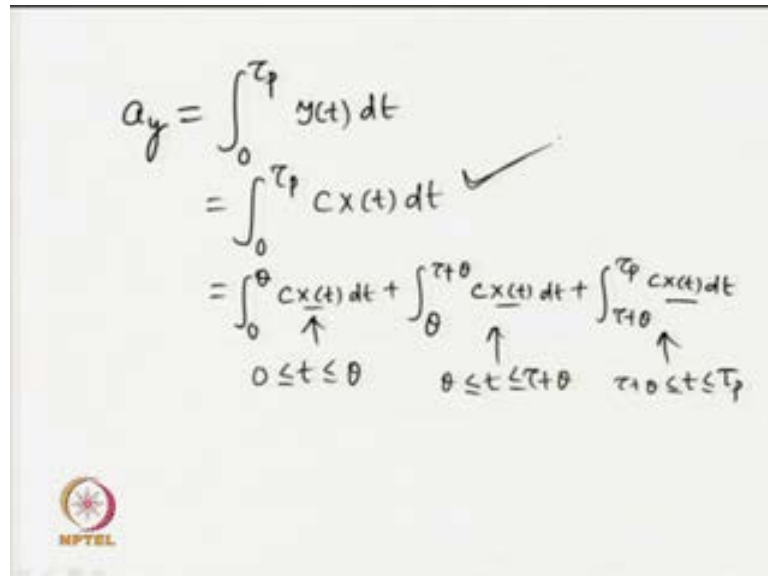 a_y = ∫_0^{τ_p} y(t) dt
= ∫_0^{τ_p} C x(t) dt ✓
= ∫_0^θ C x(t) dt + ∫_θ^{τ+θ} C x(t) dt + ∫_{τ+θ}^{τ_p} C x(t) dt
↑ ↑ ↑
0 ≤ t ≤ θ θ ≤ t ≤ τ+θ τ+θ ≤ t ≤ τ_p
NPTEL